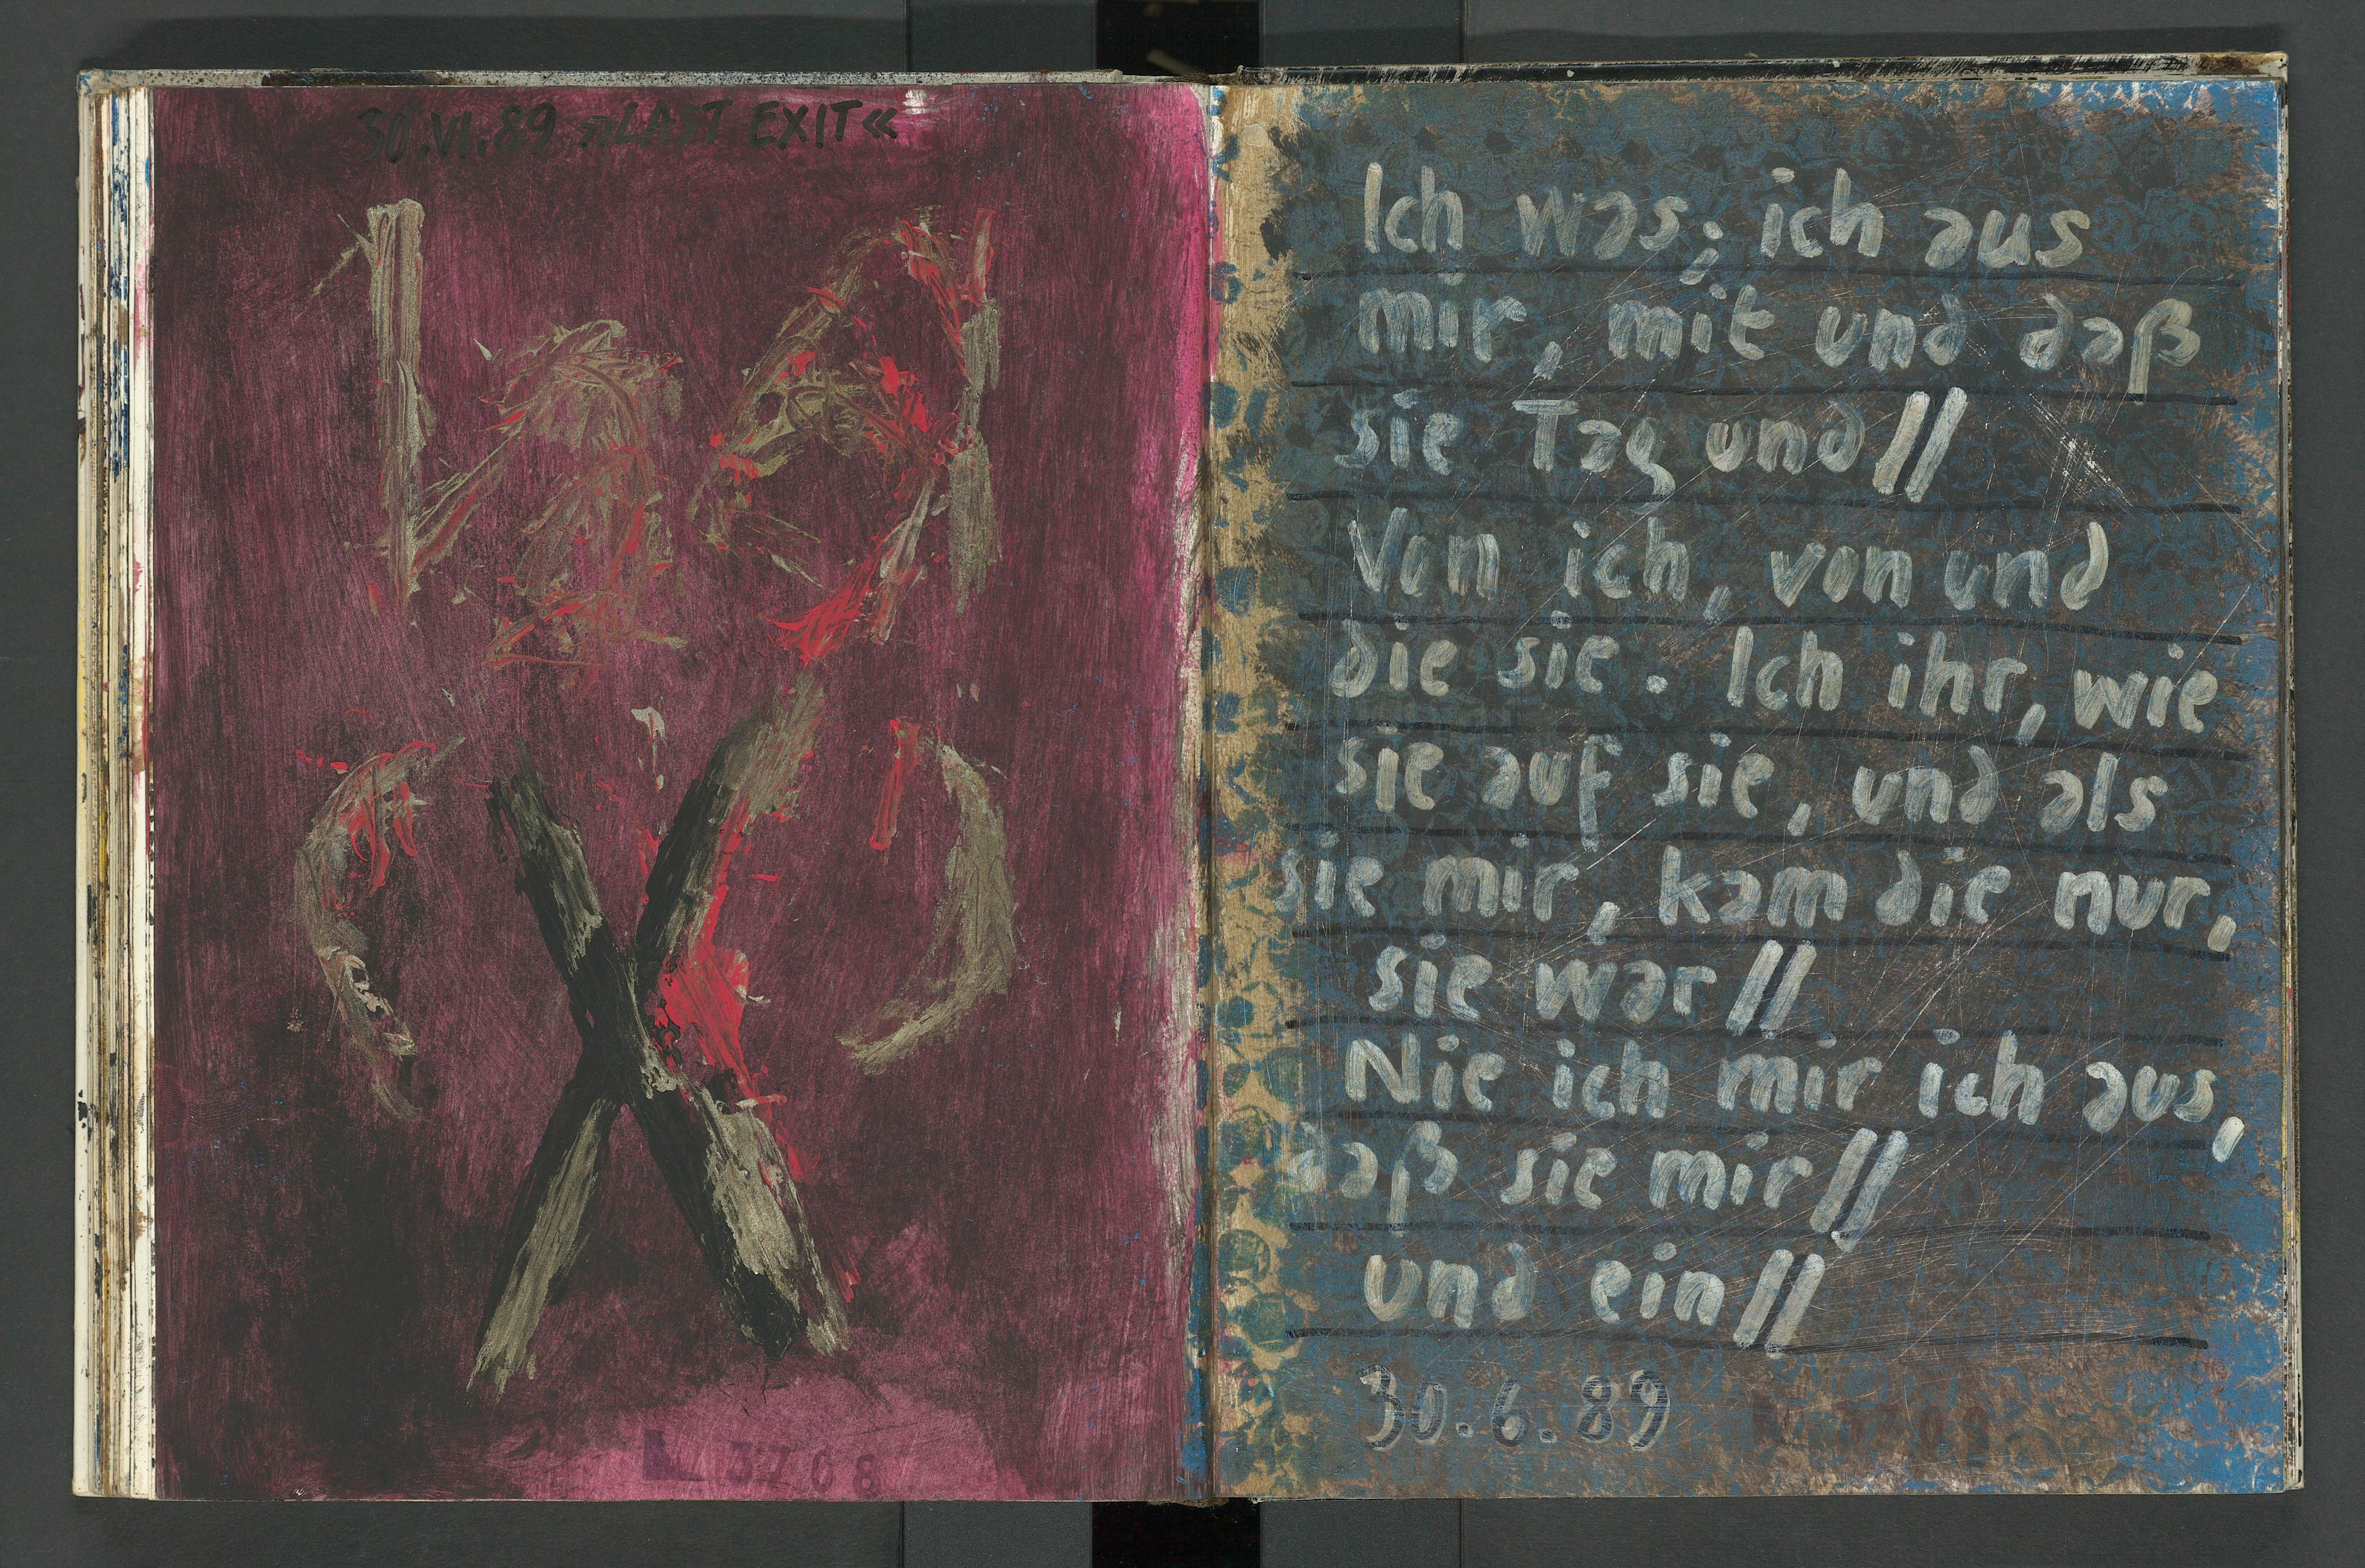 30.VI.89 »LAST EXIT«
L 3708
Ich was; ich aus
mir, mit und daß
sie Tag und//
Von ich, von und
die sie. Ich ihr, wie
sie auf sie, und als
sie mir, kam die nur,
sie war//
Nie ich mir ich aus,
daß sie mir//
und ein//
30.6.89
3709